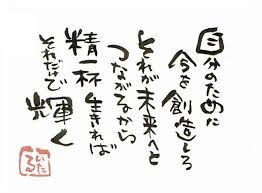 自分のために
今を創造しろ
それが未来へと
つながるから
精一杯生きれば
それだけで
輝く
いたる